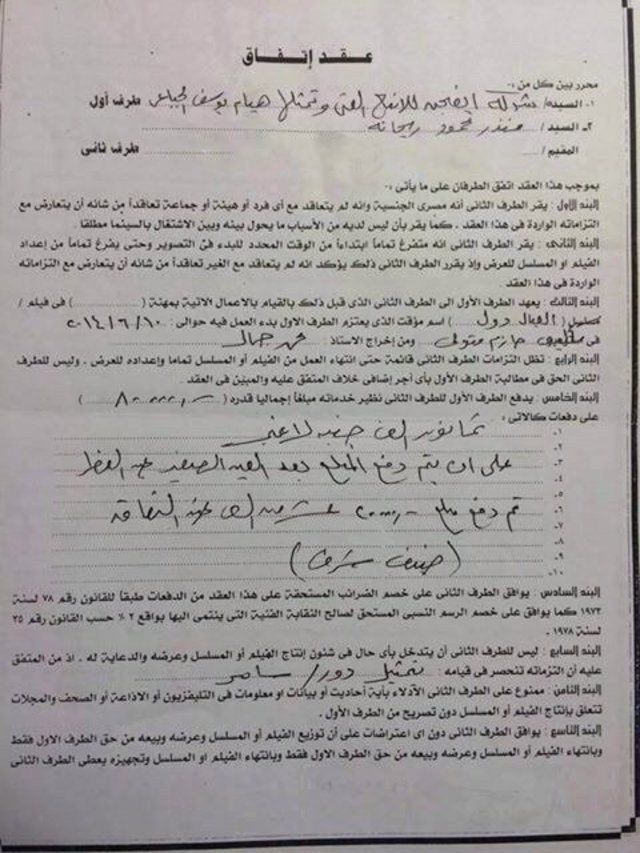 عقد إتفاق
محرر بين كل من :-
١- السيده/ شركة الفجر للانتاج الفنى وتمثلها هيام يوسف طرف أول
٢- السيد/ منذر محمود ريحانه
المقيم/ طرف ثانى
بموجب هذا العقد اتفق الطرفان على ما يأتى :-
البند الأول : يقر الطرف الثانى أنه مصرى الجنسية وانه لم يتعاقد مع أى فرد أو هيئة أو جماعة تعاقداً من شانه أن يتعارض مع
التزاماته الواردة فى هذا العقد . كما يقر بأن ليس لديه من الأسباب ما يحول بينه وبين الاشتغال بالسينما مطلقا .
البند الثانى : يقر الطرف الثانى انه متفرغ تماماً ابتداءاً من الوقت المحدد للبدء فى التصوير وحتى يفرغ تماماً من إعداد
الفيلم او المسلسل للعرض وإذ يقرر الطرف الثانى ذلك يؤكد انه لم يتعاقد مع الغير تعاقداً من شانه أن يتعارض مع التزاماته
الواردة فى هذا العقد .
البند الثالث : يعهد الطرف الأول الى الطرف الثانى الذى قبل ذلك بالقيام بالاعمال الاتية بمهنة (............) فى فيلم /
مسلسل ( دول ) اسم مؤقت الذى يعتزم الطرف الاول بدء العمل فيه حوالى : ٢٠١٤/٦/١٠
فى حازم متولى ومن إخراج الاستاذ : جمال
البند الرابع : تظل التزامات الطرف الثانى قائمة حتى انتهاء العمل من الفيلم أو المسلسل تماما وإعداده للعرض . وليس للطرف
الثانى الحق فى مطالبة الطرف الأول بأى أجر إضافى خلاف المتفق عليه والمبين فى العقد .
البند الخامس : يدفع الطرف الأول للطرف الثانى نظير خدماته مبلغاً إجماليا قدره ( ٨٠٠٠٠,- )
على دفعات كالاتى :
١- ثمانون الف جنيه لاغير
٢-
٣- على ان يتم دفع المبلغ بعد العيد الصغير عيد الفطر
٤-
٥-
٦- تم دفع مبلغ ٢٠٠٠٠,- عشرين الف
٧-
٨-
٩- (ضيف شرف)
١٠-
البند السادس : يوافق الطرف الثانى على خصم الضرائب المستحقة على هذا العقد من الدفعات طبقاً للقانون رقم ٧٨ لسنة
١٩٧٣ كما يوافق على خصم الرسم النسبى المستحق لصالح النقابة الفنية التى ينتمى اليها بواقع ٢ ٪ حسب القانون رقم ٣٥
لسنة ١٩٧٨ .
البند السابع : ليس للطرف الثانى أن يتدخل بأى حال فى شئون إنتاج الفيلم أو المسلسل وعرضه والدعاية له . اذ من المتفق
عليه أن التزماته تنحصر فى قيامه : بتمثيل دور/ سامر
البند الثامن : ممنوع على الطرف الثانى الآدلاء بأية أحاديث أو بيانات او معلومات فى التليفزيون أو الاذاعة أو الصحف والمجلات
تتعلق بإنتاج الفيلم او المسلسل دون تصريح من الطرف الأول .
البند التاسع : يوافق الطرف الثانى دون اى اعتراضات على أن توزيع الفيلم أو المسلسل وعرضه وبيعه من حق الطرف الاول فقط
وبانتهاء الفيلم أو المسلسل وعرضه وبيعه من حق الطرف الاول فقط وبانتهاء الفيلم او المسلسل وتجهيزه يعطى الطرف الثانى